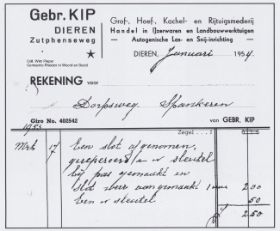 Gebr. KIP
DIEREN
Zutphenseweg
Grof-, Hoef-, Kachel- en Rijtuigsmederij
Handel in IJzerwaren en Landbouwwerktuigen
Autogenische Las- en Snij-inrichting
DIEREN, Januari 1954
REKENING voor
Dorpsweg Spankeren
Giro No. 402542
Zegel
van GEBR. KIP
1953
Mrt 17 Een slot afgenomen,
gerepareerd en sleutel
bij pas gemaakt en
slot weer aangemaakt 1 uur 2 00
ben. sleutel 50
2.50